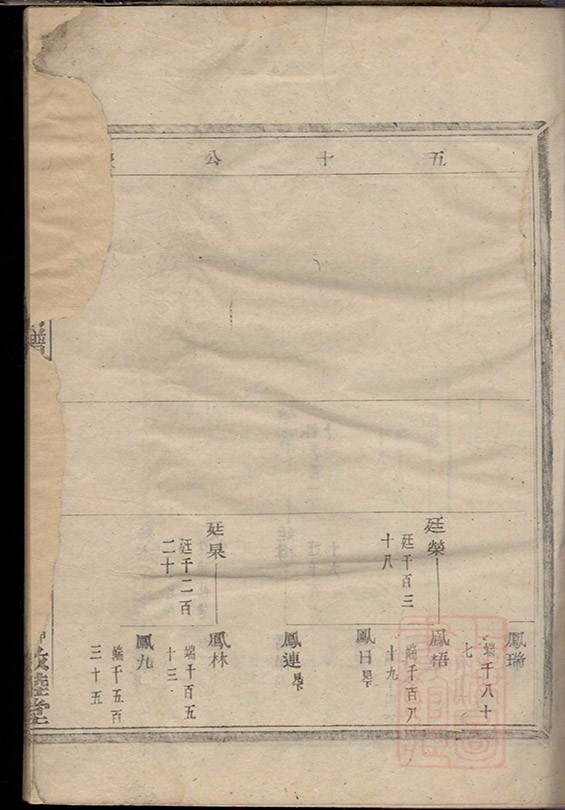 五十公
廷榮
廷千百三
十八
廷杲
廷千二百
二十
鳳瑞
端千八十
七
鳳梧
端千百八
十九
鳳日早
鳳連早
鳳林
端千百五
十三
鳳九
端千五百
三十五
譜
敦睦堂